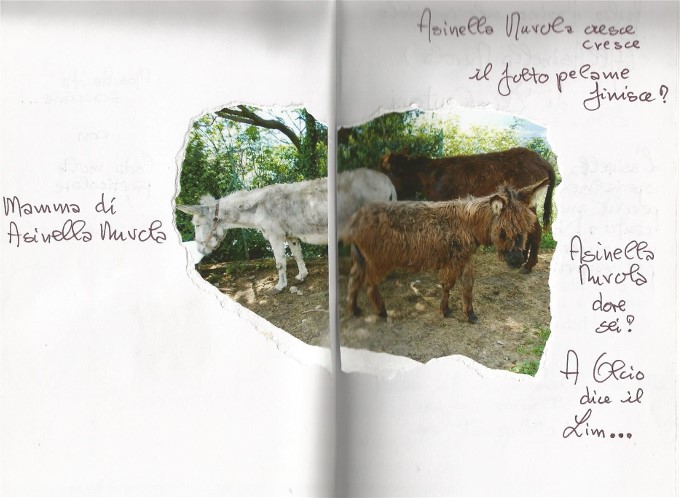 Mamma di
Asinella Nuvola
Asinella Nuvola cresce
cresce
il folto pelame
finisce?
Asinella
Nuvola
dove
sei?
A
dice il
Lim...